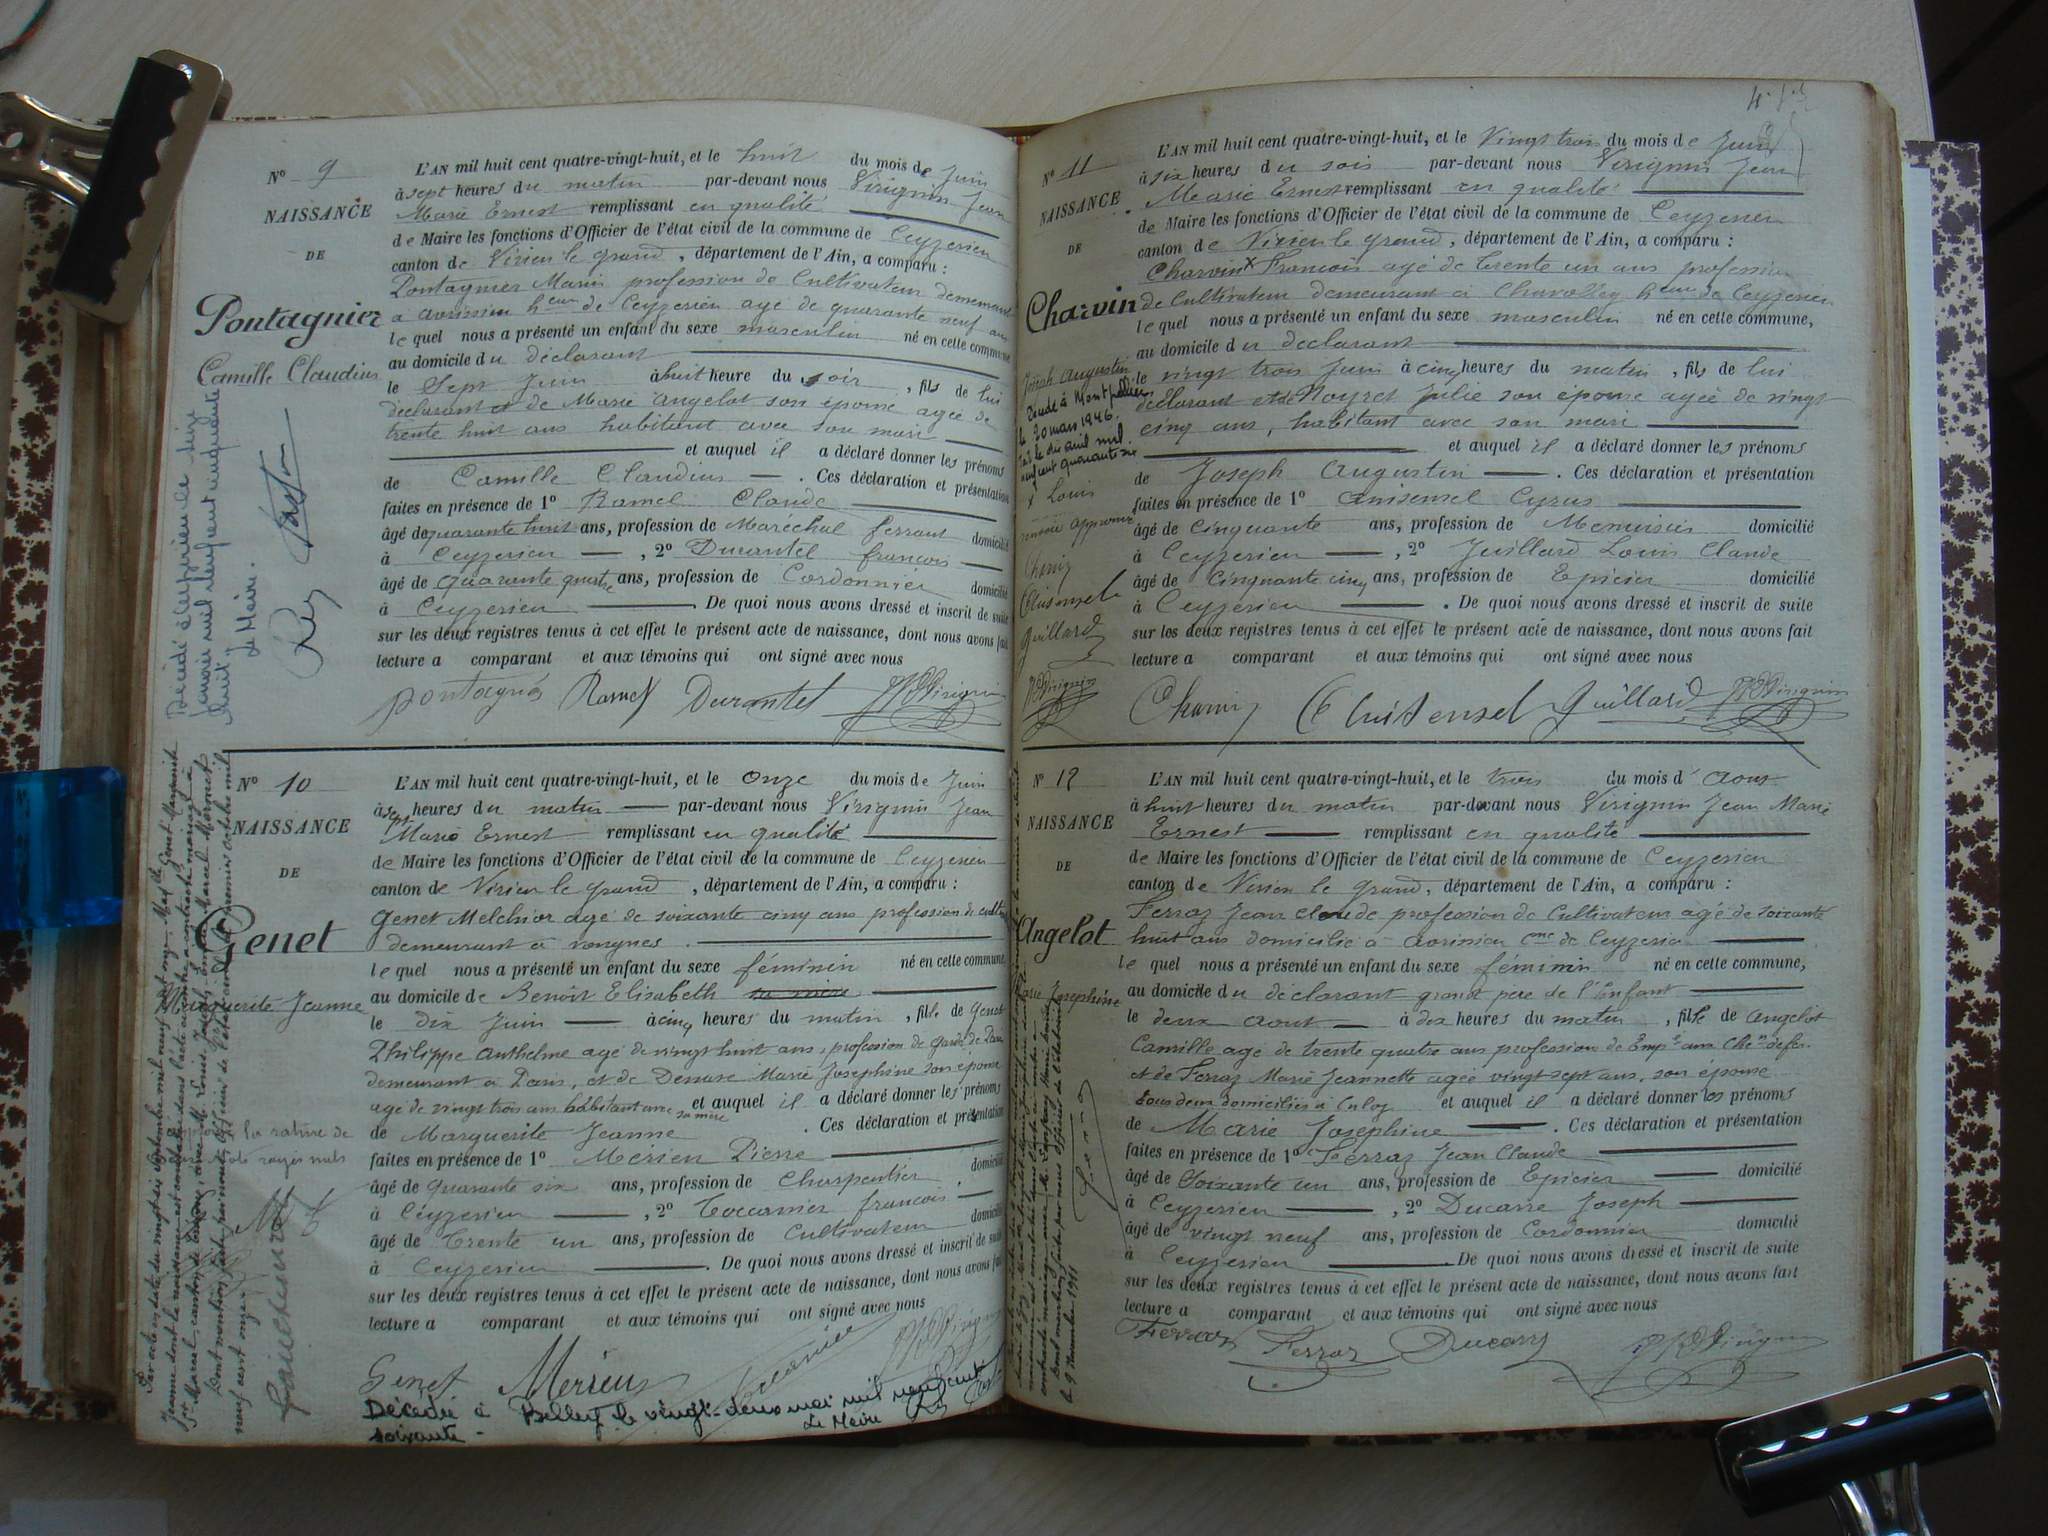 Nº 9
NAISSANCE
DE
Pontagnier
Camille Claudius
Décédé à Ceyzérieu le seize
janvier mil neuf cent cinquante
huit.
Le Maire.
L'AN mil huit cent quatre-vingt-huit, et le huit du mois de Juin
à sept heures du matin par-devant nous Virignin Jean
Marie Ernest remplissant en qualité
de Maire les fonctions d'Officier de l'état civil de la commune de Ceyzerieu
canton de Virieu le grand, département de l'Ain, a comparu :
Pontagnier Marin profession de Cultivateur demeurant
à avrissieu heau de Ceyzerieu agé de quarante neuf ans
lequel nous a présenté un enfant du sexe masculin né en cette commune
au domicile du déclarant
le Sept Juin à huit heure du soir, fils de lui
déclarant et de Marie Angelot son épouse agée de
trente huit ans habitant avec son mari
et auquel il a déclaré donner les prénoms
de Camille Claudius. Ces déclaration et présentation
faites en présence de 1º Ramel Claude
âgé de quarante huit ans, profession de Maréchal ferrant domicilié
à Ceyzerieu, 2º Durantel francois
âgé de quarante quatre ans, profession de Cordonnier domicilié
à Ceyzerieu. De quoi nous avons dressé et inscrit de suite
sur les deux registres tenus à cet effet le présent acte de naissance, dont nous avons fait
lecture a comparant et aux témoins qui ont signé avec nous
pontagné Ramel Durantel JMEVirignin
Nº 10
NAISSANCE
DE
Genet
Marguerite Jeanne
la rature de
rayés nuls
L'AN mil huit cent quatre-vingt-huit, et le onze du mois de Juin
à sept heures du matin par-devant nous Virignin Jean
Marie Ernest remplissant en qualité
de Maire les fonctions d'Officier de l'état civil de la commune de Ceyzerieu
canton de Virieu le grand, département de l'Ain, a comparu :
Genet Melchior agé de soixante cinq ans profession de cult
demeurant à vongnes.
lequel nous a présenté un enfant du sexe féminin né en cette commune,
au domicile de Benoît Elisabeth sa mère
le dix Juin à cinq heures du matin, fille de Genet
Philippe Anthelme agé de vingt huit ans, profession de garde de Paix
demeurant à Paris, et de Marie Josephine son épouse
agé de vingt trois ans habitant avec sa mère et auquel il a déclaré donner les prénoms
de Marguerite Jeanne. Ces déclaration et présentation
faites en présence de 1º Merieu Pierre
âgé de quarante six ans, profession de Charpentier, domicilié
à Céyzerieu, 2º Tocarnier francois
âgé de trente un ans, profession de Cultivateur domicilié
à Ceyzerieu. De quoi nous avons dressé et inscrit de suite
sur les deux registres tenus à cet effet le présent acte de naissance, dont nous avons fait
lecture a comparant et aux témoins qui ont signé avec nous
Genet Merieu
Décédée à Belley le vingt-deux mai mil neuf cent
soixante - Le Maire
Nº 11
NAISSANCE
DE
Charvin
Joseph Augustin
Décédé à Montpellier
le 30 mars 1946.
x Louis
renvoi approuvé
Charvin
Cluisensel
Guillard
JMEVirignin
L'AN mil huit cent quatre-vingt-huit, et le Vingt trois du mois de Juin
à six heures du soir par-devant nous Virignin Jean
Marie Ernest remplissant en qualité
de Maire les fonctions d'Officier de l'état civil de la commune de Ceyzerieu
canton de Virieu le grand, département de l'Ain, a comparu :
Charvin x Francois agé de trente un ans profession
de Cultivateur demeurant à Chavolley heau de Ceyzerieu
lequel nous a présenté un enfant du sexe masculin né en cette commune,
au domicile du déclarant
le vingt trois Juin à cinq heures du matin, fils de lui
déclarant et de Noyret Julie son épouse agée de vingt
cinq ans, habitant avec son mari
et auquel il a déclaré donner les prénoms
de Joseph Augustin. Ces déclaration et présentation
faites en présence de 1º Cyrus
âgé de Cinquante ans, profession de Menuisier domicilié
à Ceyzerieu, 2º Juillard Louis Claude
âgé de Cinquante cinq ans, profession de Epicier domicilié
à Ceyzerieu. De quoi nous avons dressé et inscrit de suite
sur les deux registres tenus à cet effet le présent acte de naissance, dont nous avons fait
lecture a comparant et aux témoins qui ont signé avec nous
Charvin Cluisensel Guillard JMEVirignin
Nº 12
NAISSANCE
DE
Angelot
Marie Josephine
le 9 Novembre 1911
L'AN mil huit cent quatre-vingt-huit, et le trois du mois d'Aout
à huit heures du matin par-devant nous Virignin Jean Marie
Ernest remplissant en qualité
de Maire les fonctions d'Officier de l'état civil de la commune de Ceyzerieu
canton de Virieu le grand, département de l'Ain, a comparu :
Ferraz Jean claude profession de Cultivateur agé de soixante
huit ans domicilié à avrissieu cne de Ceyzerieu
lequel nous a présenté un enfant du sexe féminin né en cette commune,
au domicile du déclarant grand père de l'Enfant
le deux Aout à dix heures du matin, fille de Angelot
Camille agé de trente quatre ans profession de Empé aux Chns de fer
et de Ferraz Marie Jeannette agée vingt sept ans, son épouse
tous deux domiciliés à Culoz et auquel il a déclaré donner les prénoms
de Marie Josephine. Ces déclaration et présentation
faites en présence de 1º Ferraz Jean Claude
âgé de Soixante un ans, profession de Epicier domicilié
à Ceyzerieu, 2º Ducarre Joseph
âgé de vingt neuf ans, profession de Cordonnier domicilié
à Ceyzerieu. De quoi nous avons dressé et inscrit de suite
sur les deux registres tenus à cet effet le présent acte de naissance, dont nous avons fait
lecture a comparant et aux témoins qui ont signé avec nous
Ferraz Ferraz Ducarre JMEVirignin